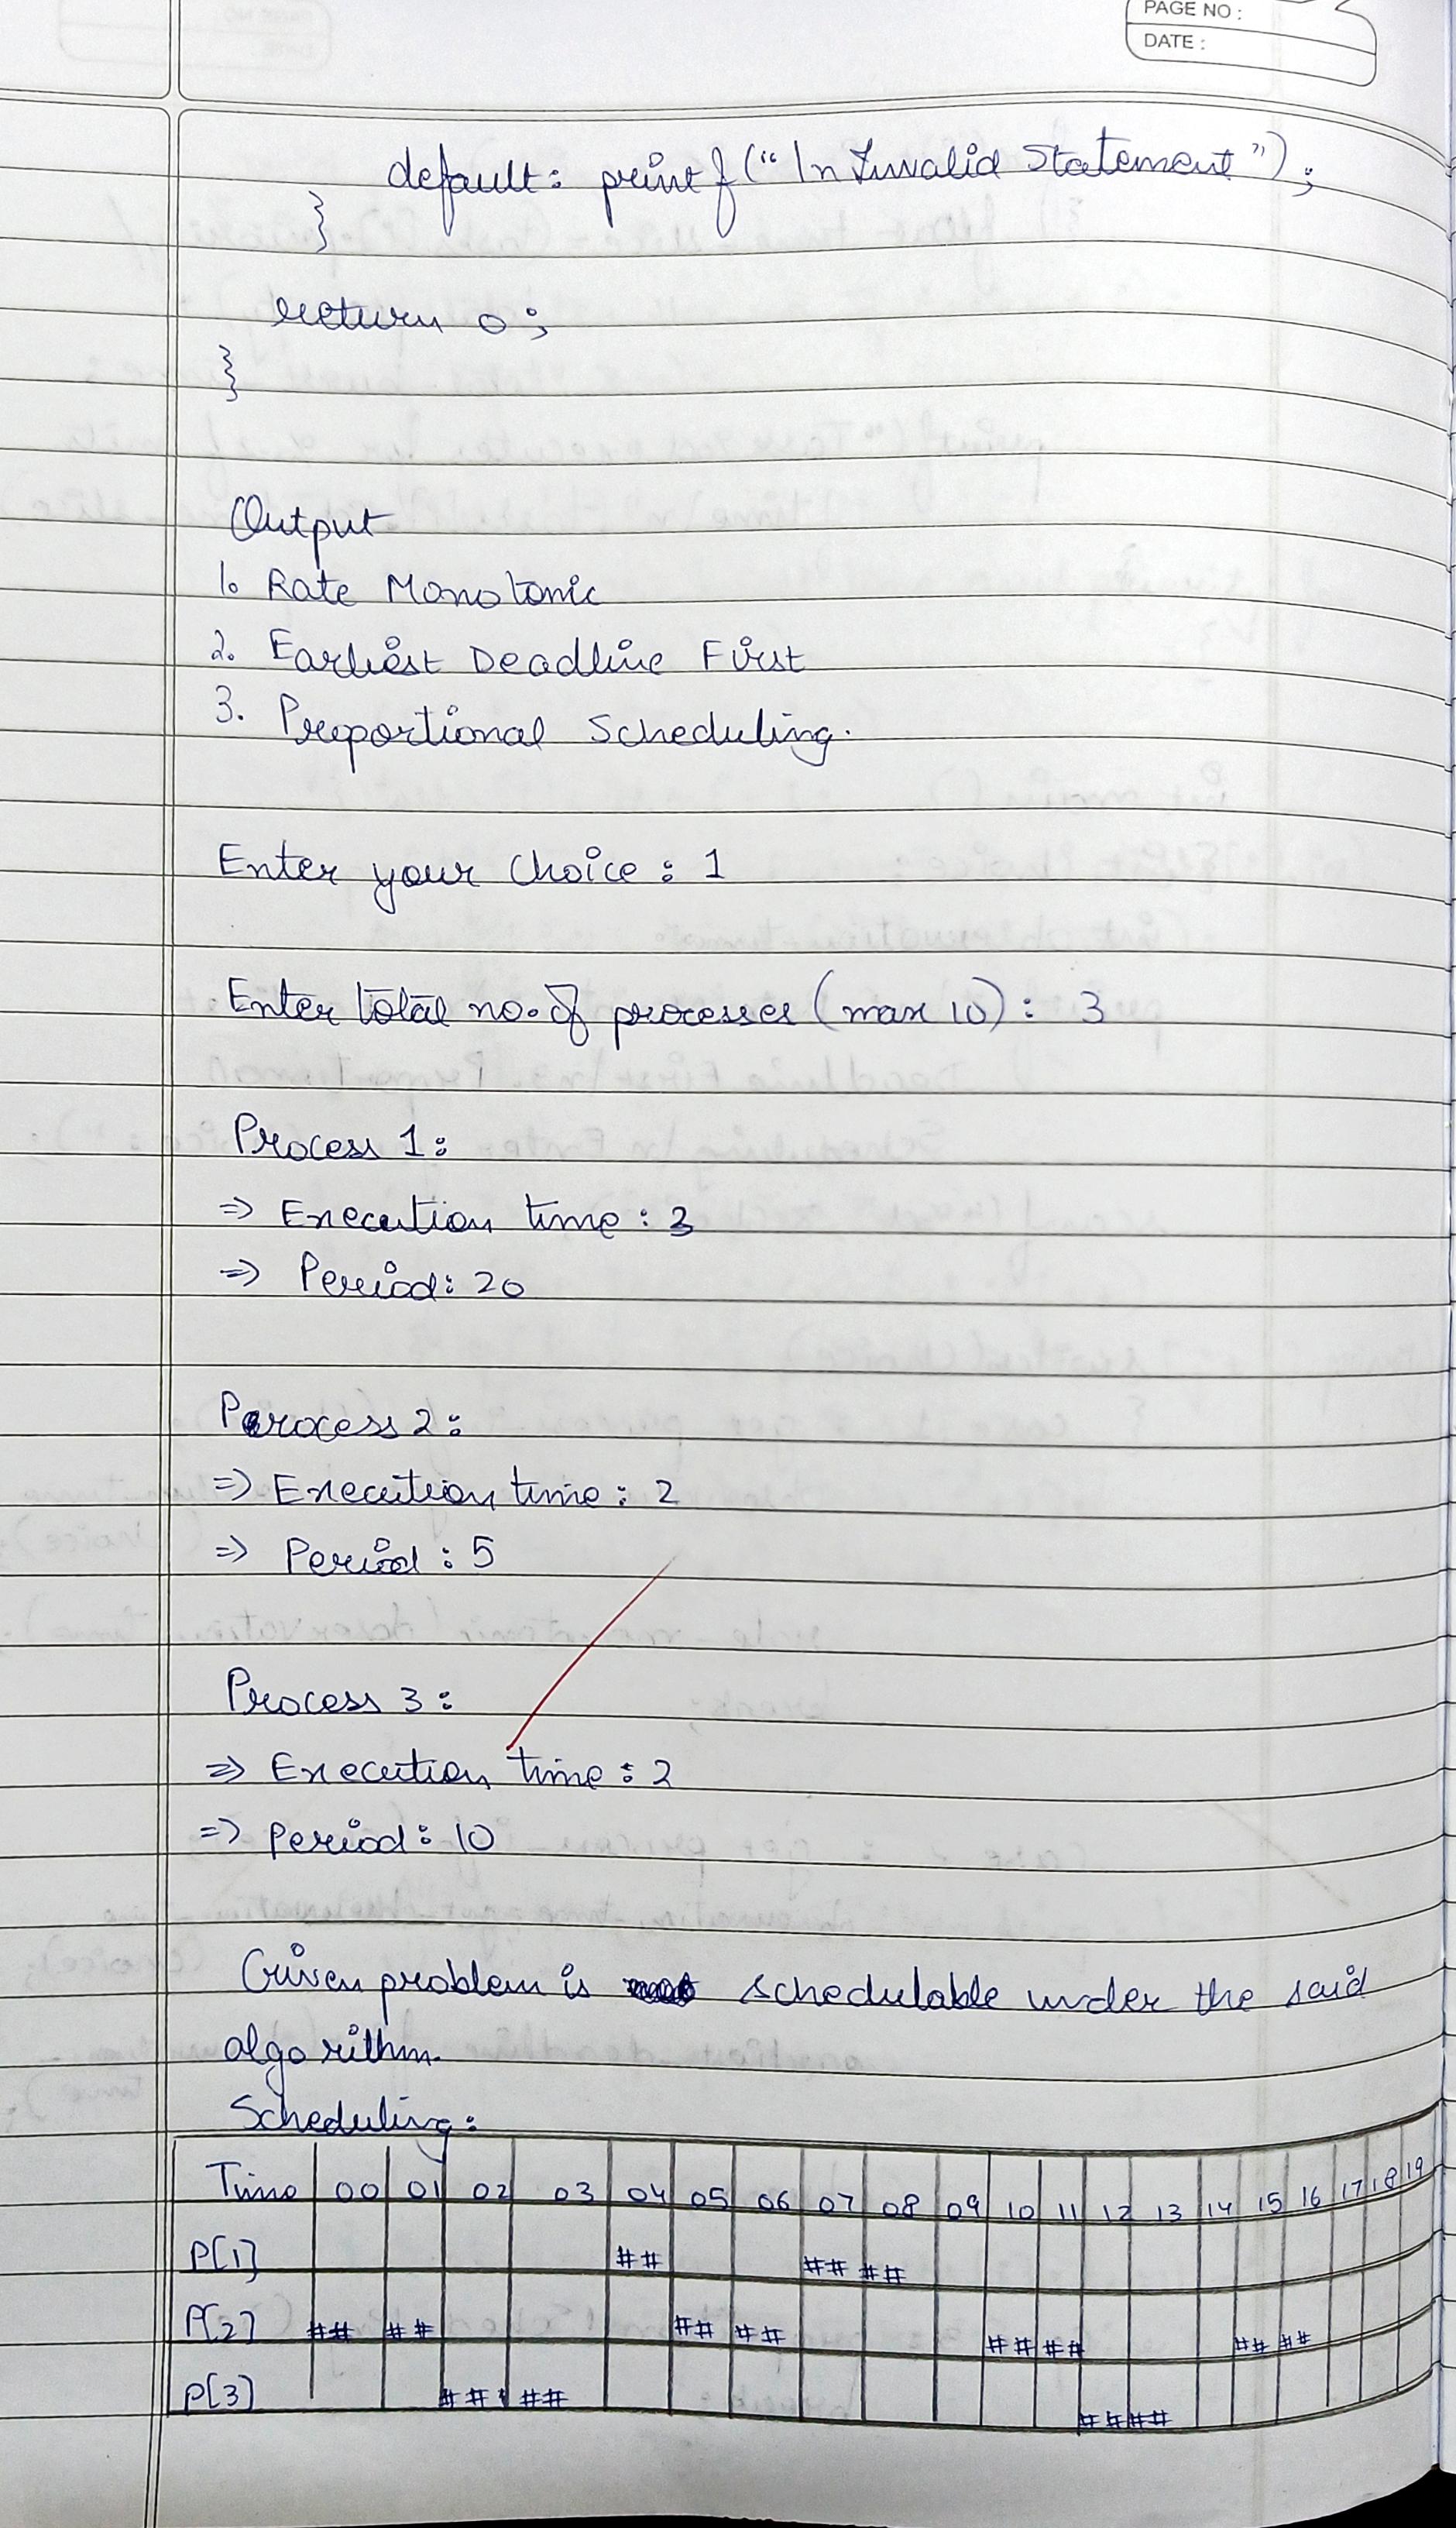 PAGE NO :
DATE :
default: printf("\n Invalid Statement");
}
return 0;
}
Output
1. Rate Monotonic
2. Earliest Deadline First
3. Proportional Scheduling.
Enter your choice : 1
Enter total no. of processes (max 10) : 3
Process 1:
=> Execution time : 3
=> Period: 20
Process 2:
=> Execution time : 2
=> Period : 5
Process 3:
=> Execution time : 2
=> Period: 10
Given problem is schedulable under the said
algorithm.
Scheduling:
Time 00 01 02 03 04 05 06 07 08 09 10 11 12 13 14 15 16 17 18 19
P[1] ## ## ##
P[2] ## ## ## ## ## ## ## ##
P[3] ## ## ## ##